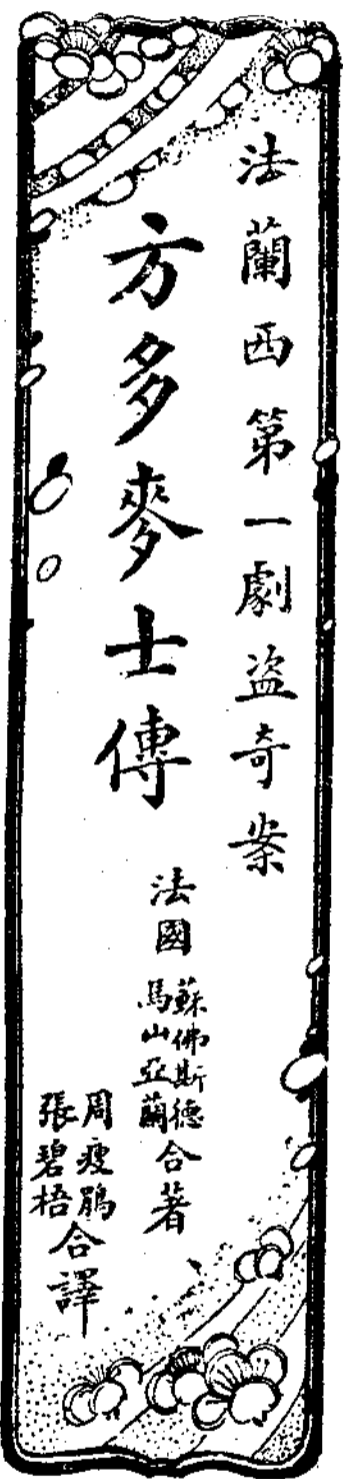 法蘭西第一劇盜奇案
方多麥士傳
法國
蘇佛斯德
馬山亞蘭
合著
周瘦鵑
張碧梧
合譯